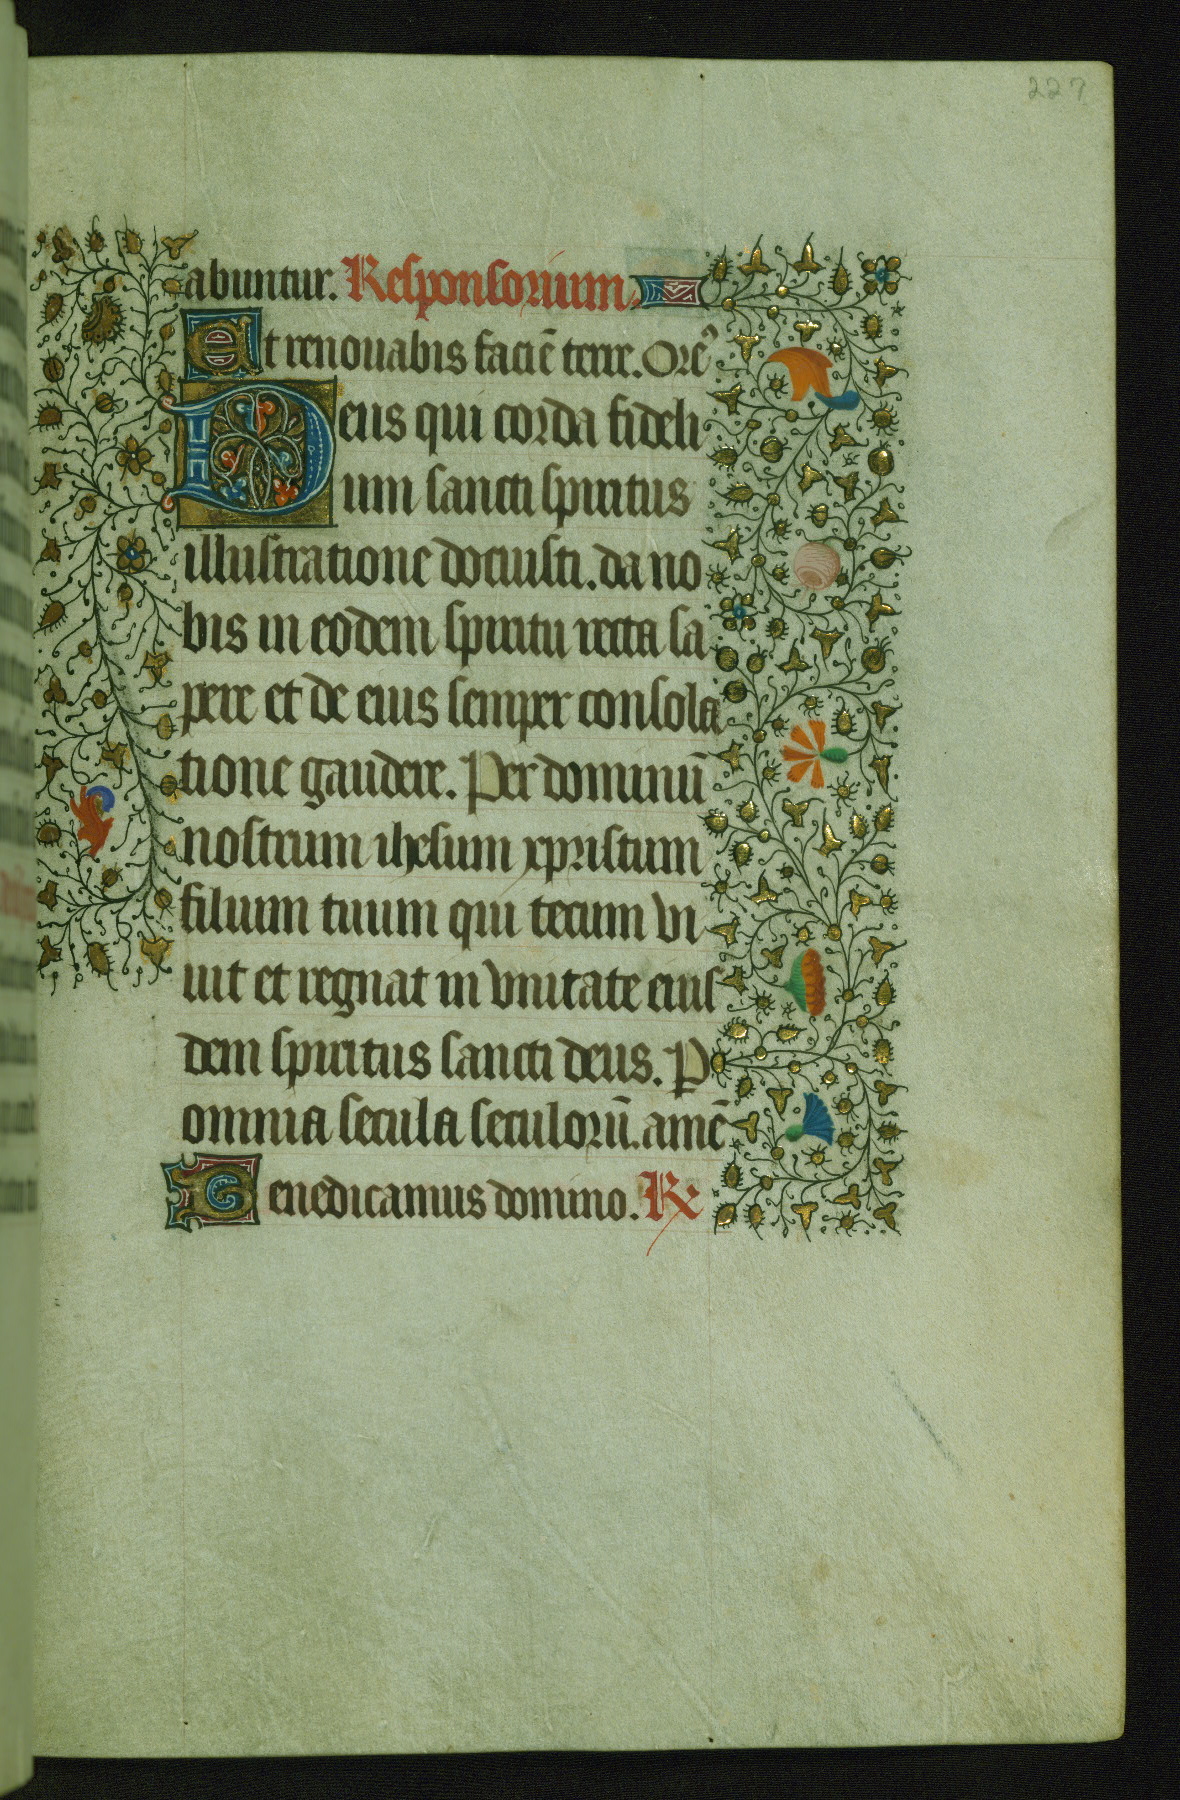 227
abuntur. Responsorium.
Et renouabis faciē terre. Ore᷒
Deus qui corda fideli
um sancti spiritus
illustratione docuisti. da no
bis in eodem spiritu recta sa
pere et de eius semper consola
tione gaudere. Per dominū
nostrum ihesum xpristum
filium tuum qui tecum vi
uit et regnat in vnitate eius
dem spiritus sancti deus. P
omnia secula seculorū. amē
Benedicamus domino. R